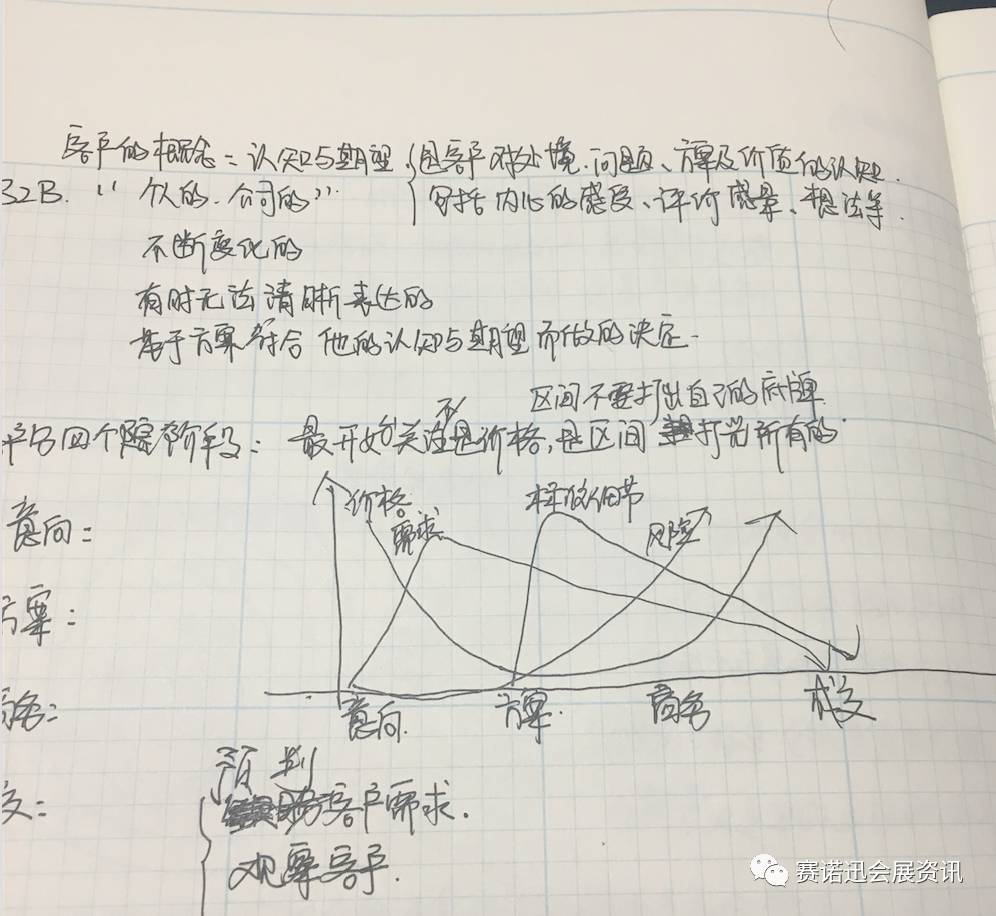 客户的概念=认知与期望.{是客户对处境.问题、方案及价值的认知.
B2B. "个人的.公司的" 包括内心的感受、评价感景、想法等.
不断变化的
有时无法清晰表达的
基于方案符合他的认知与期望而做的决定.
区间不要打出自己的底牌
四个阶段:最开始不关注是价格,是区间打光所有的
价格
需求
细节
风险
意向:
方案:
商务:
交:
意向. 方案. 商务 成交
预判
客户需求.
观察客户.
赛诺迅会展资讯